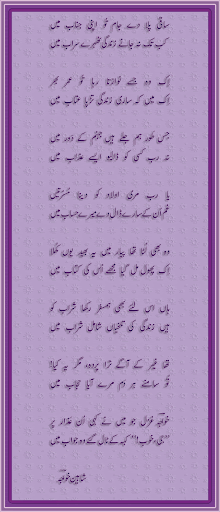 ساقی پلا دے جام تُو اپنی جناب میں
کب تک نہ جانے زندگی ٹھہرے سراب میں
اِک وہ جسے نوازتا رہا تُو عمر بھر
اِک میں کہ ساری زندگی تڑپا عتاب میں
جس طرح ہم جلے ہیں جہنم کے دَور میں
نہ رب کسی کو ڈالیو ایسے عذاب میں
یا رب مری اولاد کو دینا مسرتیں
غم اُن کے سارے ڈال دے میرے حساب میں
وہ بھی لُٹا تھا پیار میں یہ بھید یوں کُھلا
اِک پھول مل گیا مجھے اُس کی کتاب میں
ہاں اس لئے بھی ہمسفر رکھا شراب کو
ہیں زندگی کی تلخیاں شامل شراب میں
تھا غیر کے آگے ترا پردہ، مگر یہ کیا!
تُو سامنے ہر دَم مرے آیا حجاب میں
خواجہ غزل جو میں نے کہی اُن عذار پر
"جی، خوب!" کہہ کے ٹال گئے وہ جواب میں
شاہین خواجہ